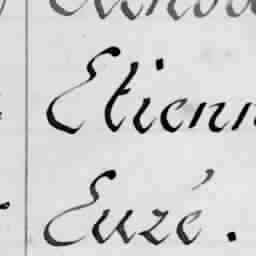 Etienn
Euzé.